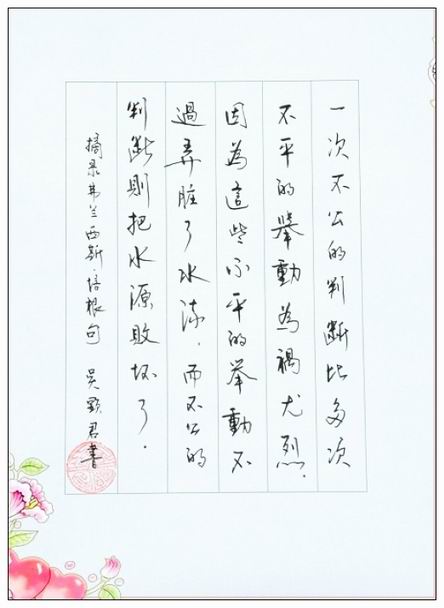 一次不公的判斷比多次
不平的舉動為禍尤烈.
因為這些不平的举動不
過弄脏了水流.而不公的
判斷則把水源敗坏了.
摘录弗兰西斯·培根句 吴君書